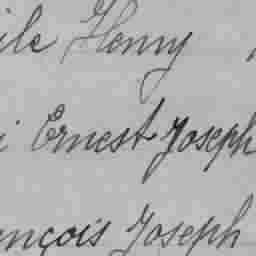 ile Henry
i Ernest Joseph
ençois Joseph